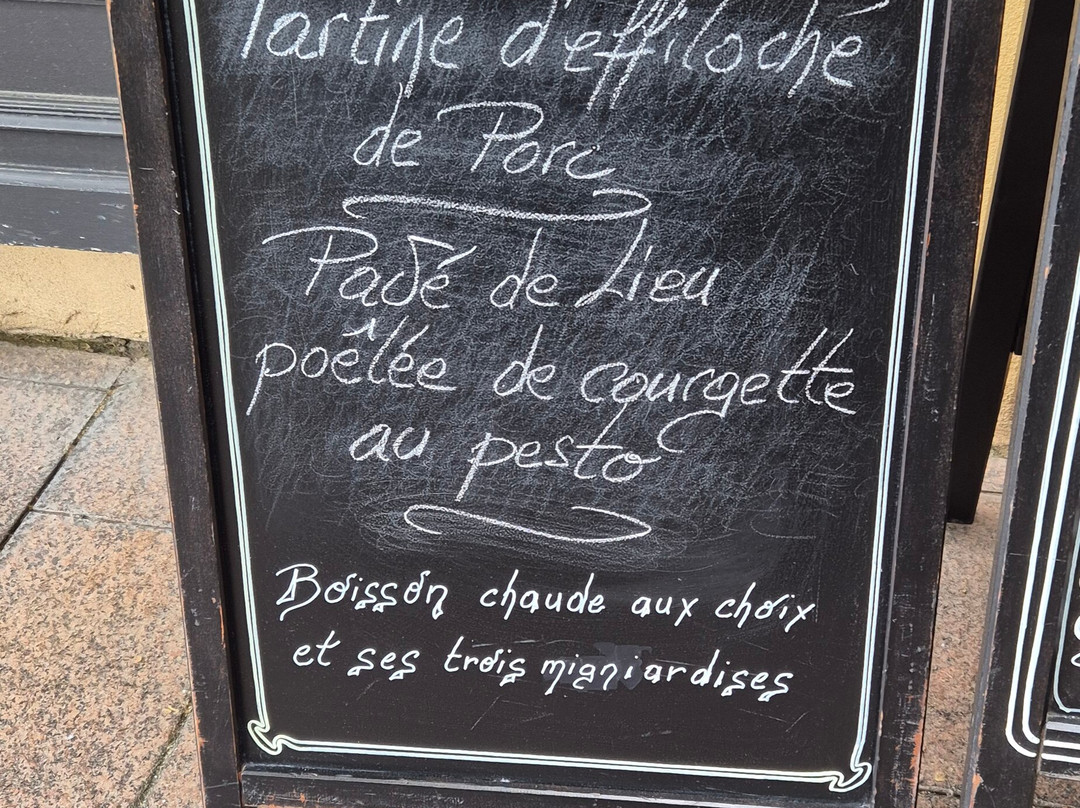 Tartine d'effiloché
de Porc
Pavé de Lieu
poêlée de courgette
au pesto
Boisson chaude aux choix
et ses trois migniardises